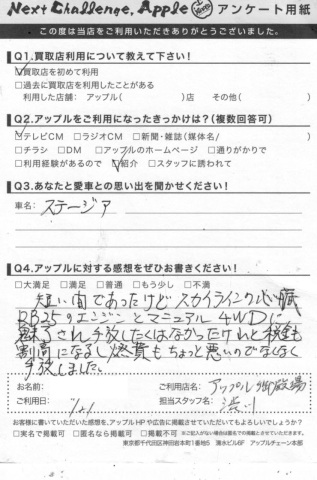 Next Challenge, Apple アンケート用紙
この度は当店をご利用いただきありがとうございました。
Q1.買取店利用について教えて下さい!
☑買取店を初めて利用
□過去に買取店を利用したことがある
利用した店舗: アップル( )店 その他( )
Q2.アップルをご利用になったきっかけは?(複数回答可)
☑テレビCM □ラジオCM □新聞・雑誌(媒体名/ )
□チラシ □DM □アップルのホームページ □通りがかりで
□利用経験があるので ☑紹介 □スタッフに誘われて
Q3.あなたと愛車との思い出を聞かせください!
車名: ステージア
Q4.アップルに対する感想をぜひお書きください!
□大満足 □満足 □普通 □もう少し □不満
短い間であったけどスカイラインの心臓
RB25のエンジンとマニュアル4WDに
魅了され手放したくはなかったけれど税金も
割高になるし燃費もちょっと悪いのでなくなく
手放しました。
お名前: ご利用店名: アップル
ご利用日: 1/21 担当スタッフ名: 渋川
お客様に書いていただいた感想を、アップルHPや広告に掲載させていただいてもよろしいでしょうか?
□実名で掲載可 □匿名なら掲載可 □掲載不可 ※ご記入がない場合は匿名での掲載とさせていただきます。
東京都千代田区神田岩本町1番地5 清水ビル6F アップルチェーン本部